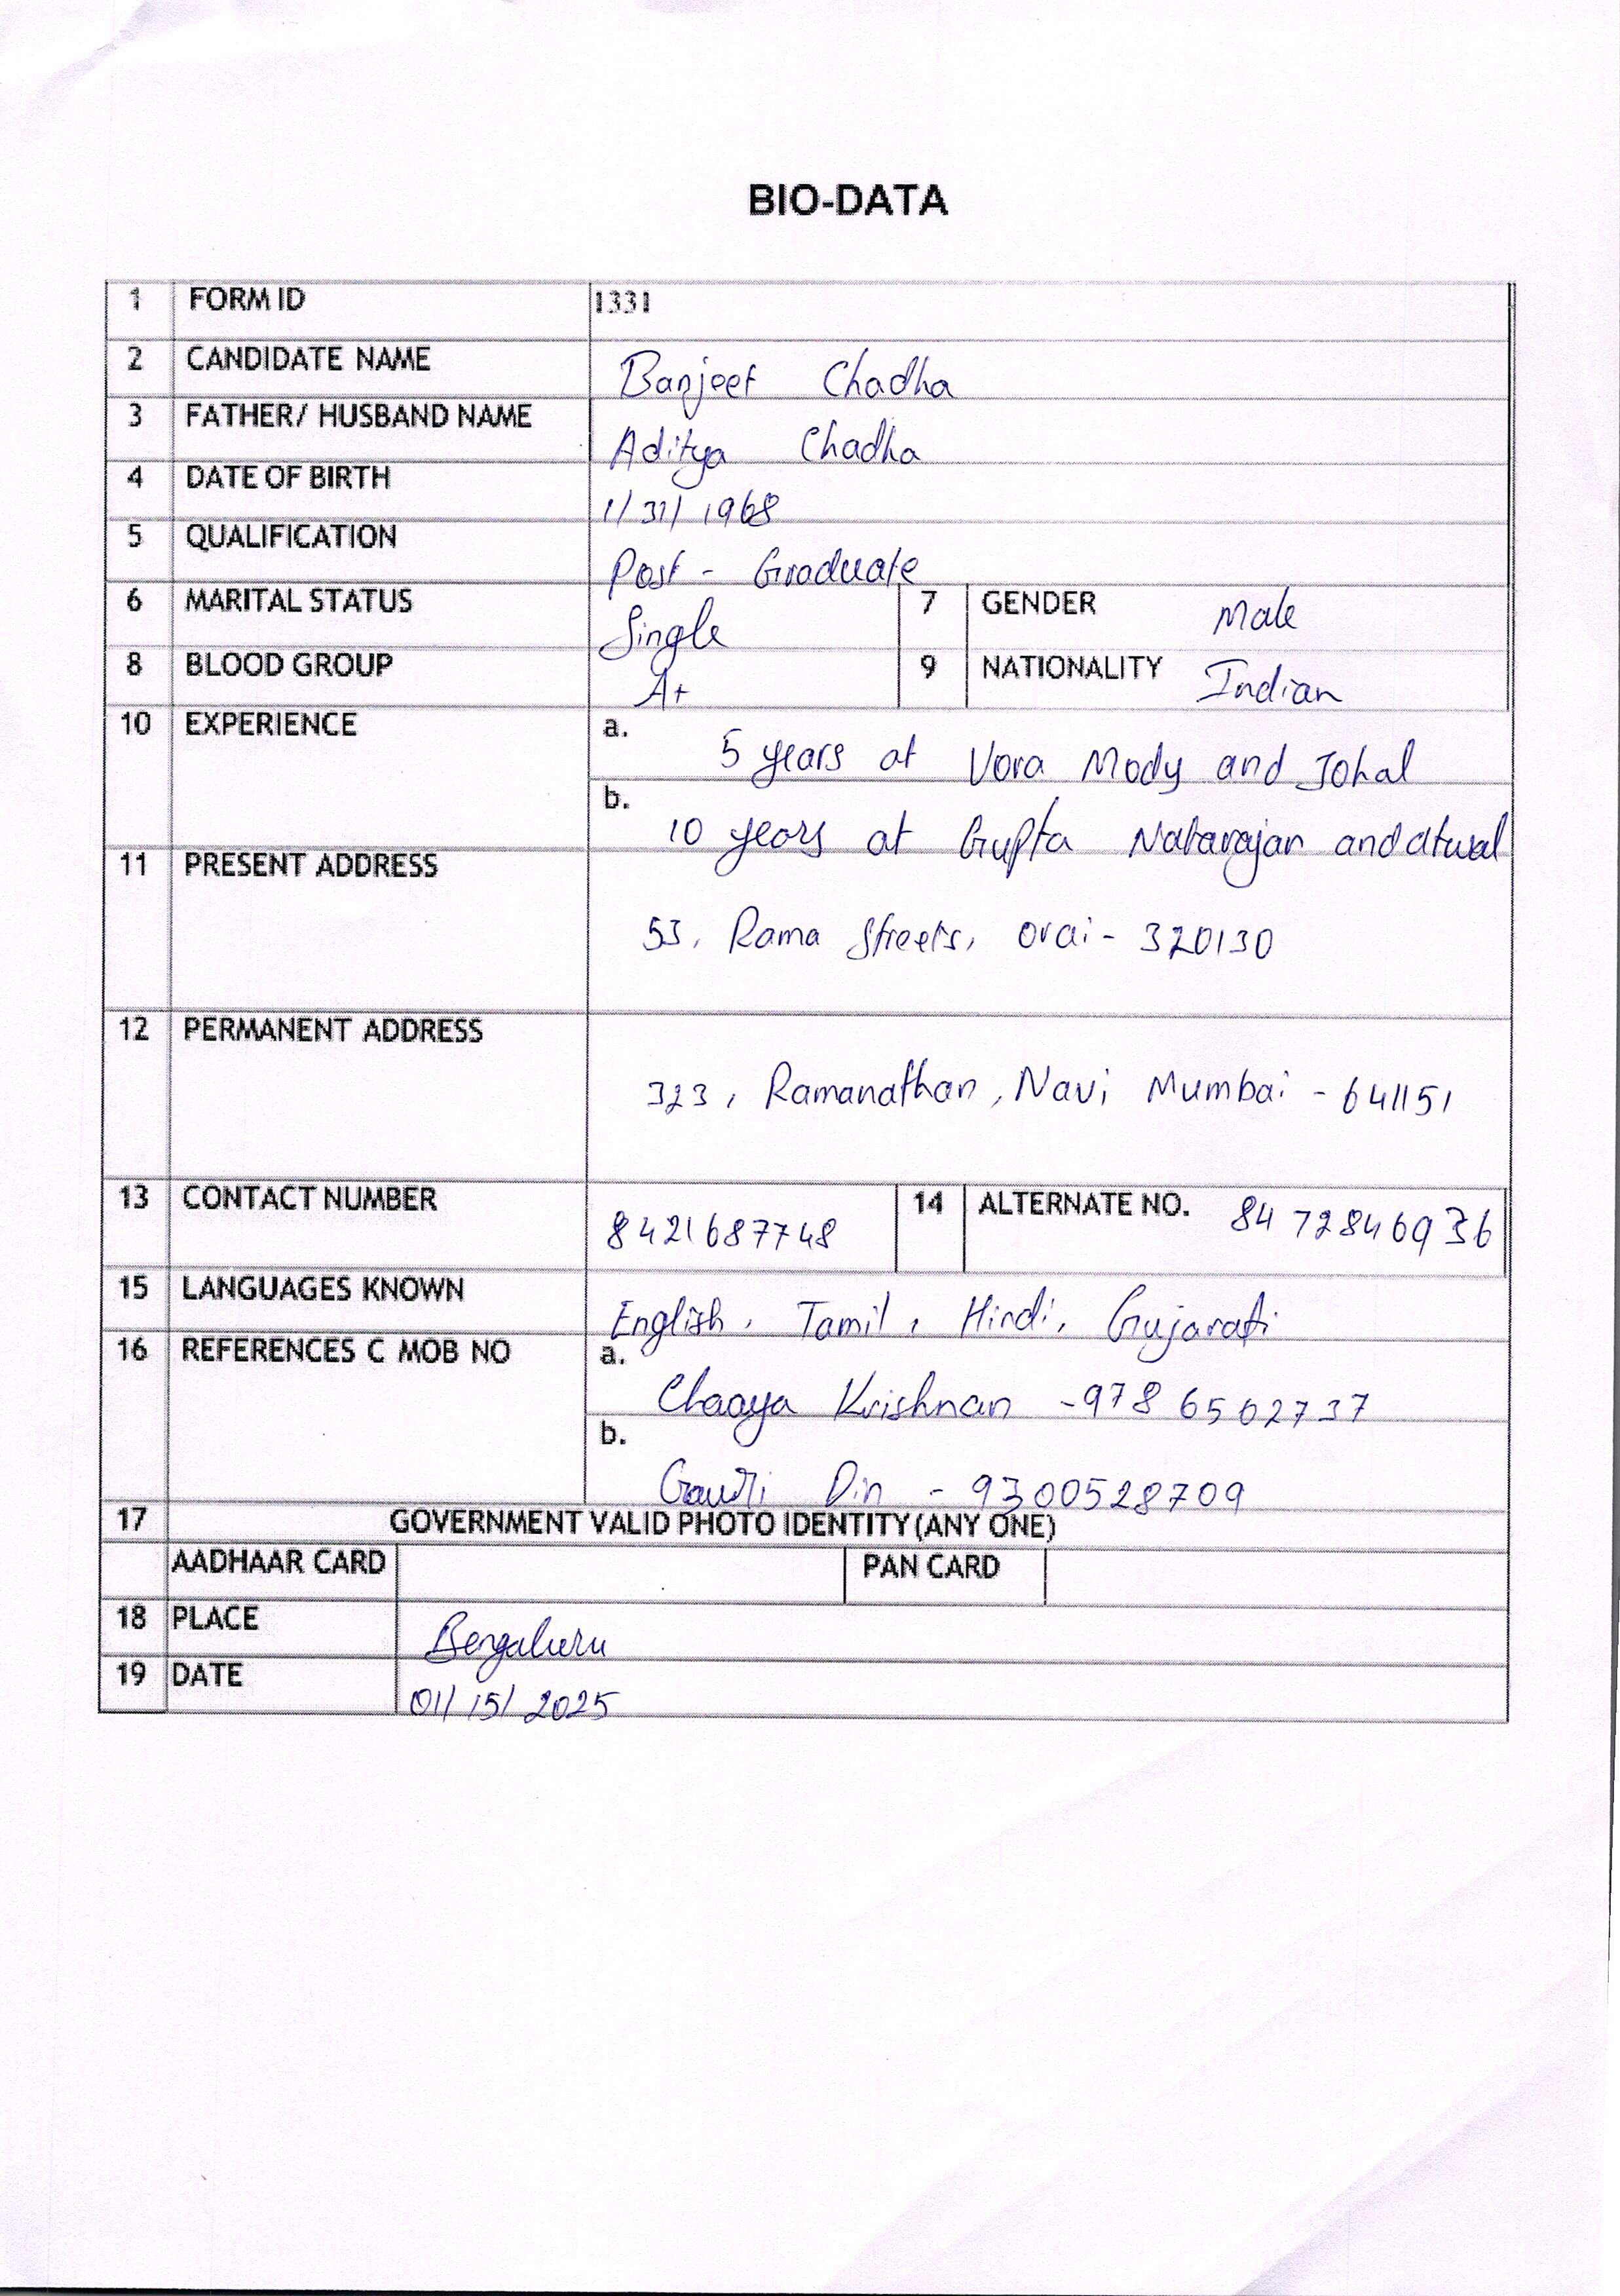 BIO-DATA
1 FORM ID 1331
2 CANDIDATE NAME Banjeet Chadha
3 FATHER/ HUSBAND NAME Aditya Chadha
4 DATE OF BIRTH 1/31/1968
5 QUALIFICATION Post - Graduate
6 MARITAL STATUS Single 7 GENDER Male
8 BLOOD GROUP A+ 9 NATIONALITY Indian
10 EXPERIENCE a. 5 years at Vora Mody and Johal
b. 10 years at Gupta Natarajan and Atwal
11 PRESENT ADDRESS
53, Rama Streets, Orai - 320130
12 PERMANENT ADDRESS
323, Ramanathan, Navi Mumbai - 641151
13 CONTACT NUMBER 8421687748 14 ALTERNATE NO. 8472846936
15 LANGUAGES KNOWN English, Tamil, Hindi, Gujarati
16 REFERENCES C MOB NO a. Chaaya Krishnan - 9786502737
b. Gauri Din - 9300528709
17 GOVERNMENT VALID PHOTO IDENTITY (ANY ONE)
AADHAAR CARD PAN CARD
18 PLACE Bengaluru
19 DATE 01/15/2025